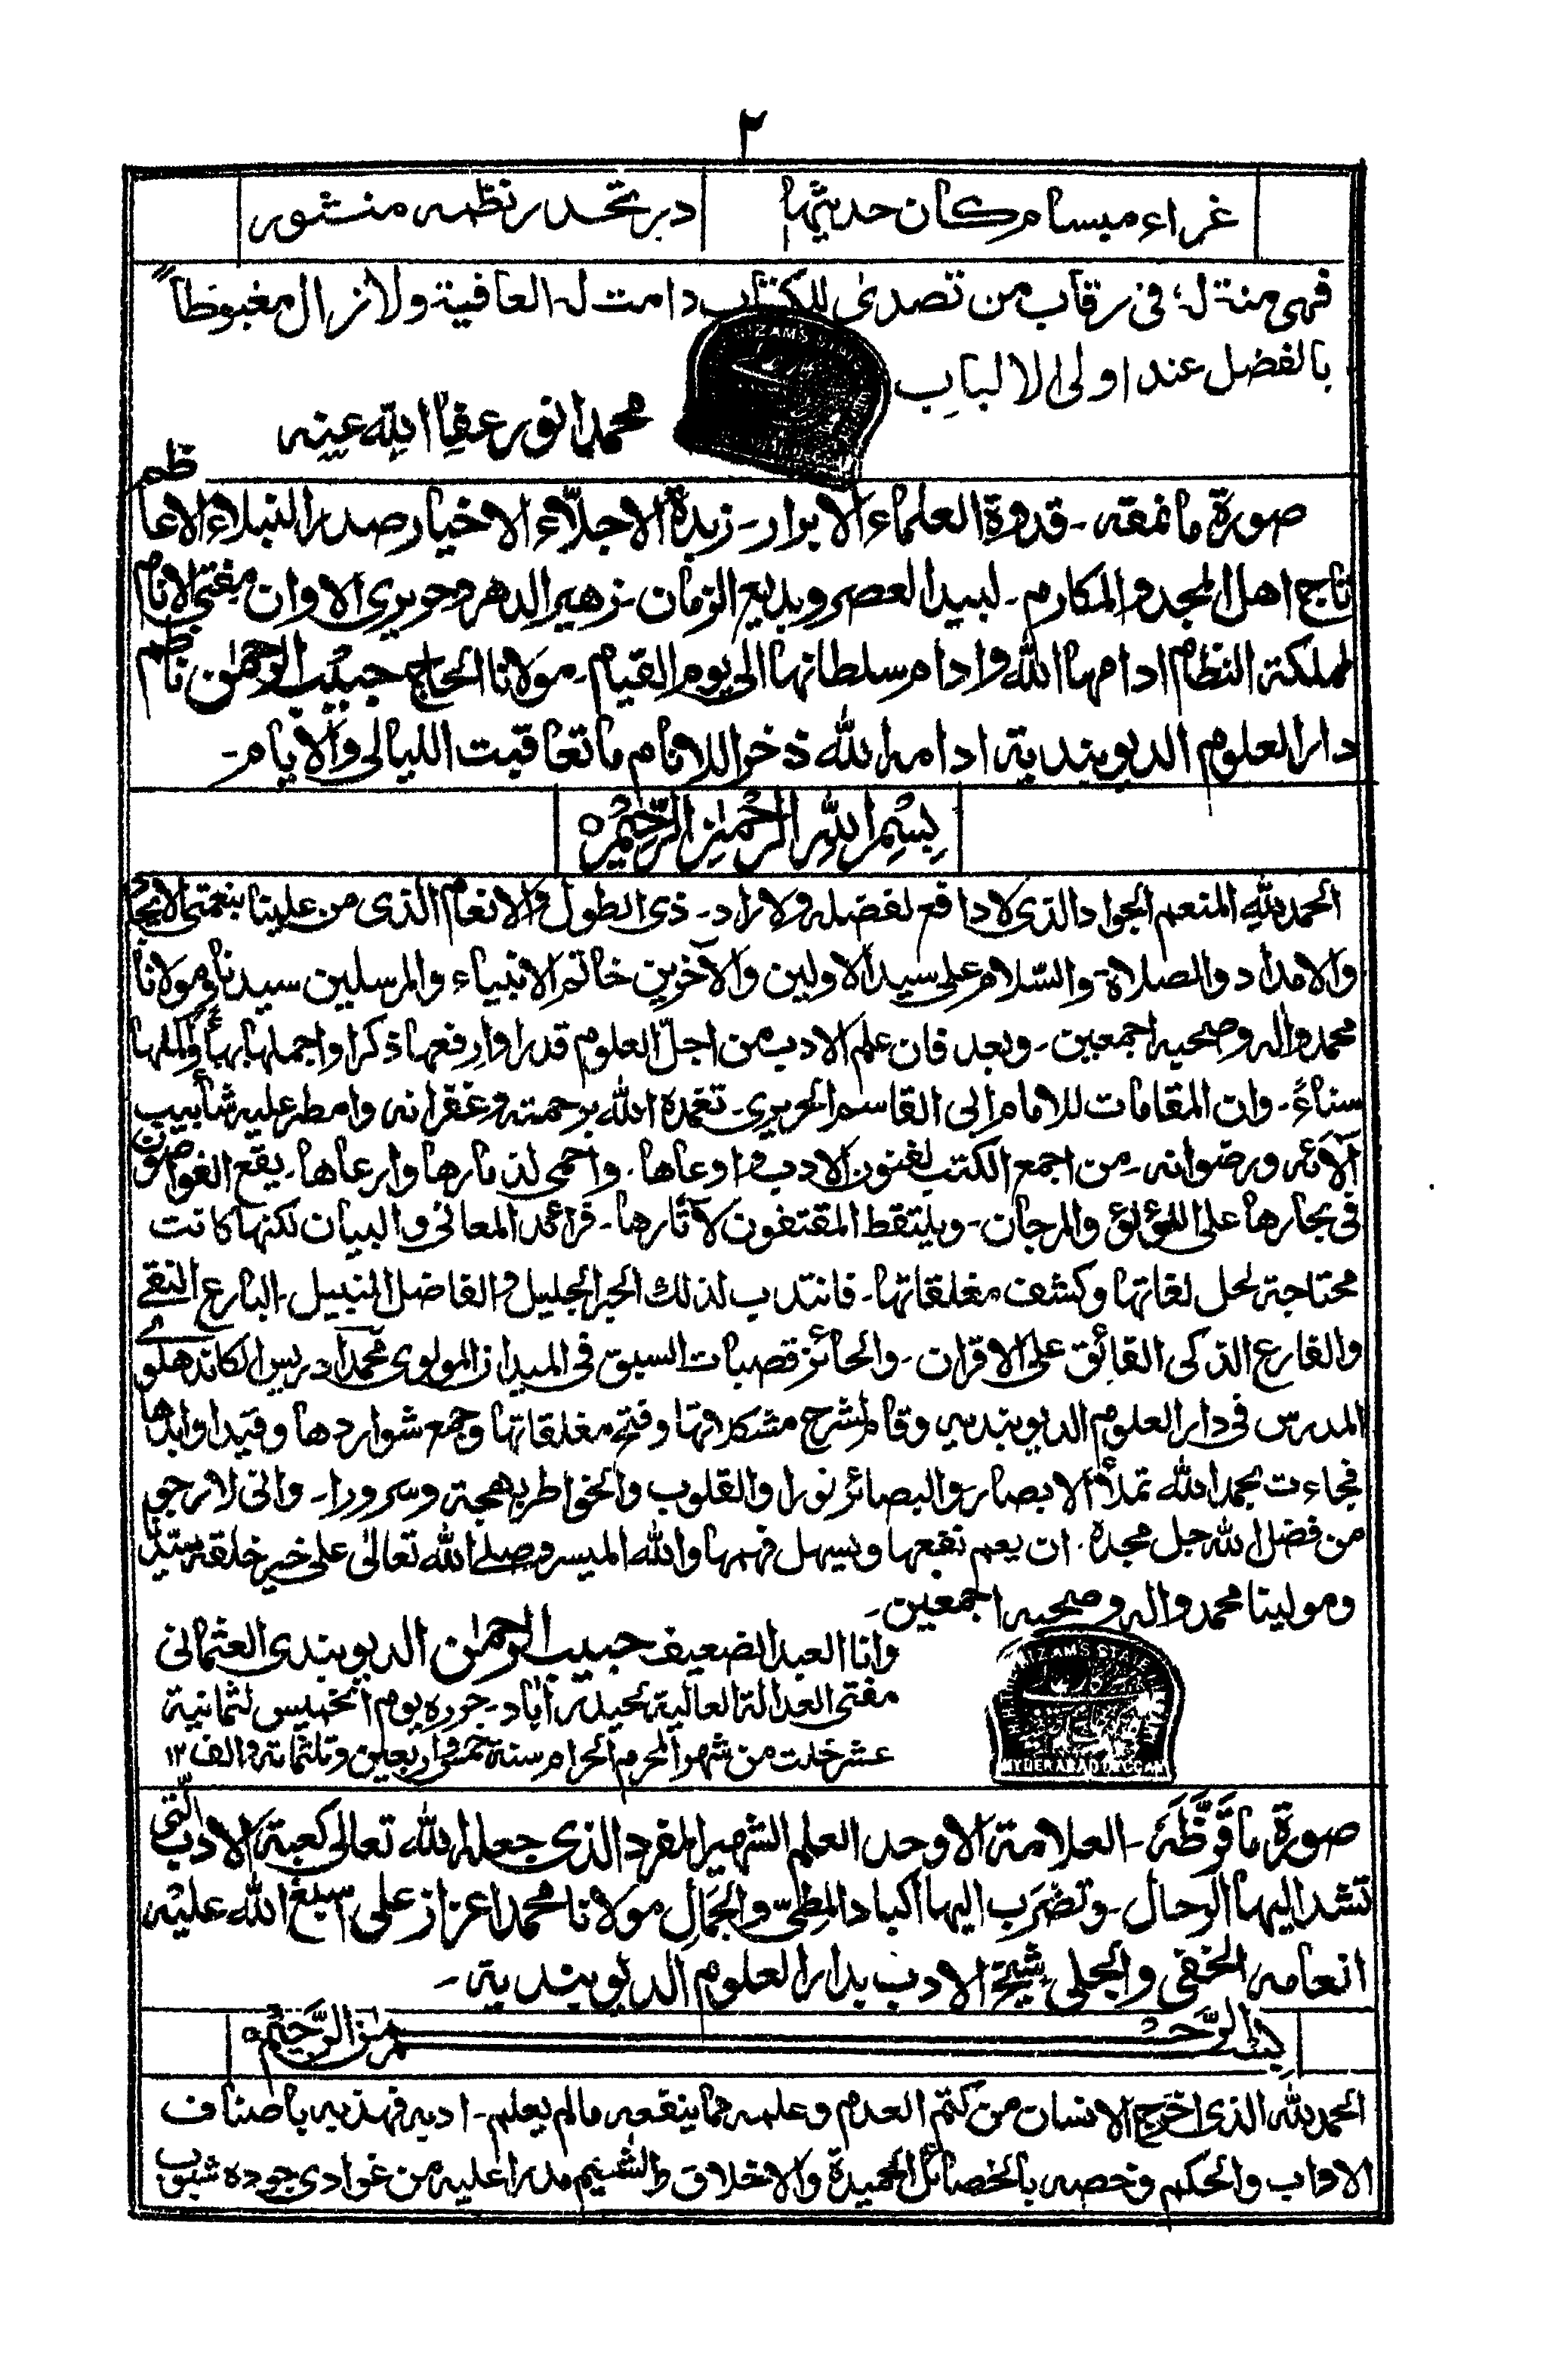 ٢
غراء مبسام كأن حديثها در تحدر نظمه منثور
فهى منة له فى رقاب من تصدى للكتاب دامت له العافية ولا نزال مغبوطاً
بالفضل عند اولى الالباب
محمد انور عفا الله عنه
صورة ما نمقه - قدوة العلماء الابرار - زبدة الاجلّاء الاخيار صدر النبلاء الاعاظم
تاج اهل المجد والمكارم - لبيد العصر وبديع الزمان - زهير الدهر وحريرى الاوان مفتى الانام
لمملكة النظام ادامها الله وادام سلطانها الى يوم القيام - مولانا الحاج حبيب الرحمٰن ناظم
دار العلوم الديوبندية ادامه الله ذخرا للانام ما تعاقبت الليالى والايام -
بِسْمِ اللهِ الرَّحْمٰنِ الرَّحِيْمِ ٥
الحمد لله المنعم الجواد الذى لا دافع لفضله ولا راد - ذى الطول والانعام الذى من علينا بنعمتى الايجاد
والامداد والصلاة والسّلام على سيد الاولين والآخرين خاتم الانبياء والمرسلين سيدنا ومولانا
محمد واله وصحبه اجمعين - وبعد فان علم الادب من اجلّ العلوم قدرا وارفعها ذكرا واجملها بهاءً واكملها
سناءً - وان المقامات للامام ابى القاسم الحريرى - تغمده الله برحمته وغفرانه وامطر عليه شأبيب
آلآئه ورضوانه - من اجمع الكتب لفنون الادب واوعاها - واحمى لذمارها وارعاها - يقع الغواصون
فى بحارها على اللؤلؤ والمرجان - ويلتقط المقتفون لآثارها - فرائد المعانى والبيان لكنها كانت
محتاجة لحل لغاتها وكشف مغلقاتها - فانتدب لذلك الحبر الجليل والفاضل النبيل - البارع النقى
والفارع الذكى الفائق على الاقران - والحائز قصبات السبق فى الميدان المولوى محمد ادريس الكاندهلوى
المدرس فى دار العلوم الديوبندية وقام لشرح مشكلاتها وفتح مغلقاتها وجمع شواردها وقيد اوابدها
فجاءت بحمد الله تملأ الابصار والبصائر نورا والقلوب والخواطر بهجة وسرورا - وانى لارجو
من فضل الله جل مجده ان يعم نفعها ويسهل فهمها والله الميسر وصلى الله تعالى على خير خلقه سيّدنا
ومولينا محمد واله وصحبه اجمعين -
وانا العبد الضعيف حبيب الرحمٰن الديوبندى العثمانى
مفتى العدالة العالية بحيدرآباد - حرره يوم الخميس لثمانية
عشر خلت من شهر المحرم الحرام سنة خمس واربعين وثلثمائة والف ١٢
NIZAM'S STATE
HYDERABAD DECCAN
صورة ما قَرَّظَهُ - العلامة الاوحد العلم الشهير المفرد الذى جعله الله تعالى كعبة الادب التى
تشد اليها الرحال - وتضرب اليها اكباد المطىّ والجمال مولانا محمد اعزاز على اسبغ الله عليه
انعامه الخفى والجلى شيخ الادب بدار العلوم الديوبندية -
بسم الله الرحمٰن الرَّحِيْمِ ٥
الحمد لله الذى اخرج الانسان من كتم العدم وعلمه مما ينفعه مالم يعلم - ادبه فهذبه باصناف
الاداب والحكم وخصه بالخصائل الحميدة والاخلاق والشيم مدرا عليه من غوادى جوده شبوب